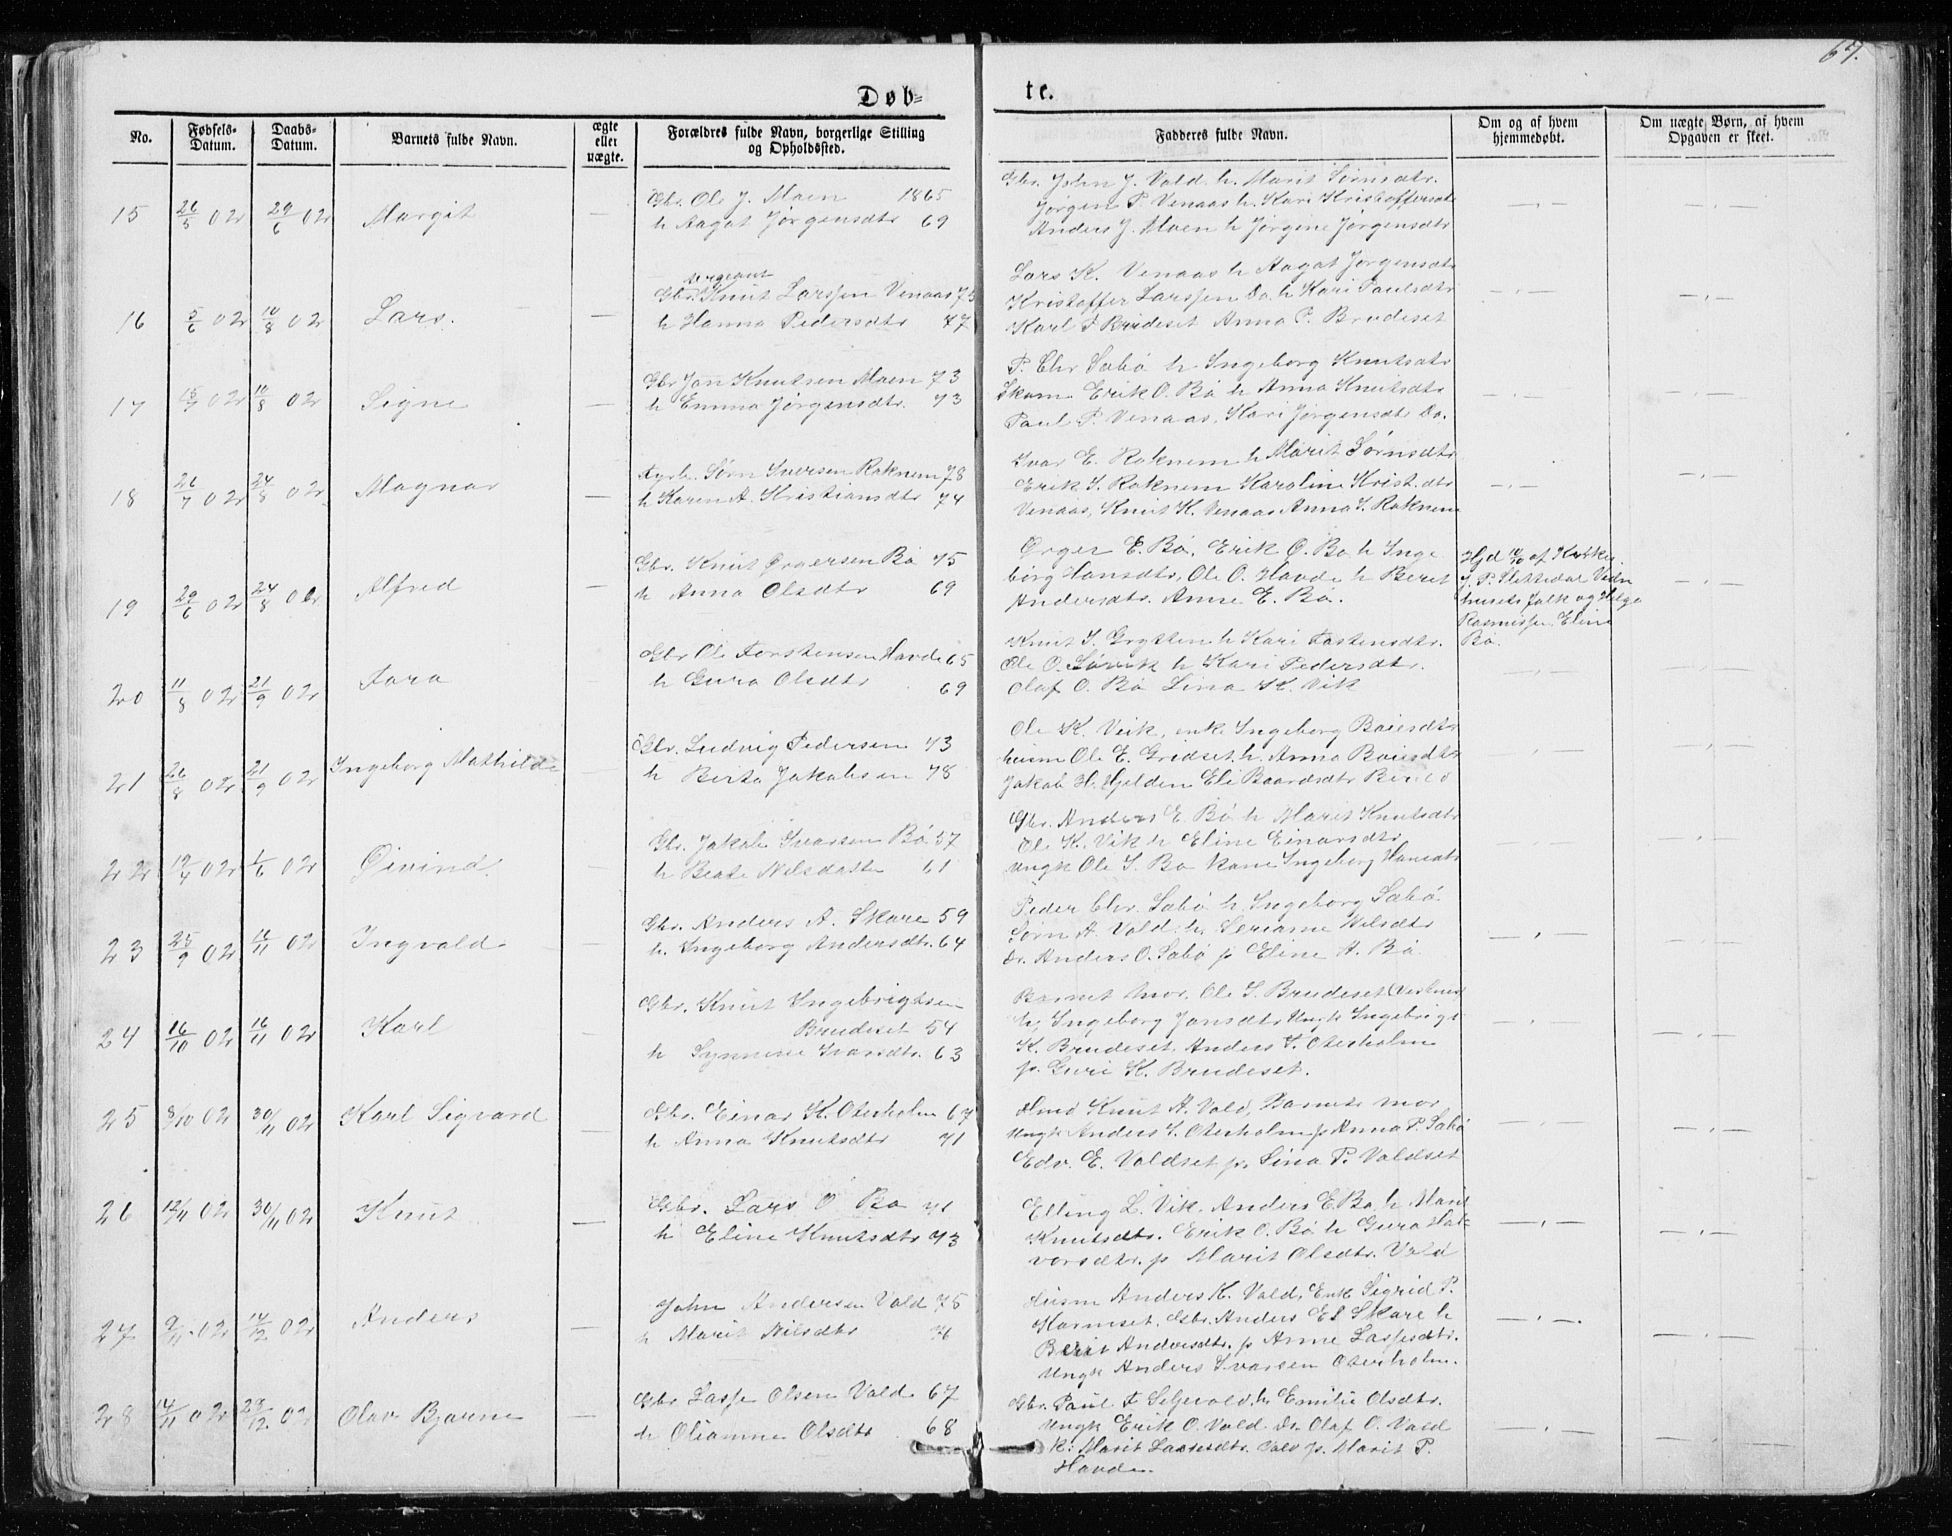 67.
Døb-
te.
No.
Fødsels-
Datum.
Daabs-
Datum.
Barnets fulde Navn.
ægte
eller
uægte.
Forældres fulde Navn, borgerlige Stilling
og Opholdssted.
Fadderes fulde Navn.
Om og af hvem
hjemmedøbt.
Om uægte Børn, af hvem
Opgaven er skeet.
15 26/5 02 29/6 02 Margit —
Gbr. Ole J. Moen 1865
h Aagat Jørgensdtr 69
Gbr. John J. Vald h. Marit Sørnsdtr.
Jørgen P Venaas h. Kari Kristoffersdtr
Anders J. Moen h Jørgine Jørgensdtr
16 5/6 02 10/8 02 Lars. —
sergeant
Gbr. Knut Larssen Venaas 75
h Hanna Pedersdtr 77
Lars K. Venaas h Aagat Jørgensdtr
Kristoffer Larssen Do. h Kari Paulsdtr
Karl P Brudeset Anna P. Brudeset
17 15/7 02 10/8 02 Signe —
Gbr Jon Knutsen Moen 73
h Emma Jørgensdtr. 73
P. Chr Sæbø h Ingeborg Knutsdtr
Skom. Erik O. Bø h Anna Knutsdtr
Paul P. Venaas, Kari Jørgensdtr Do.
18 26/7 02 24/8 02 Magnar —
Sørn Iversen Raknem 78
h Karen A. Kristiansdtr 74
Ivar E. Raknem h Marit Sørnsdtr
Erik S. Raknem Karoline Krist.dtr
Venaas, Knut K. Venaas Anna S. Raknem
19 29/6 02 24/8 02 Alfred —
Gbr. Knut Ørgersen Bø 75
h Anna Olsdtr 69
Ørger E. Bø, Erik O. Bø h Inge
borg Hansdtr, Ole O. Havde h Beret
Andersdtr. Anne E. Bø.
Hjd 10/10 af Kirkes.
J. P. Slettedal Vidn
husets folk og Helga
Rasmussen, Eline
Bø.
20 11/8 02 21/9 02 Tora
Gbr Ole Torstensen Havde 65
h Guro Olsdtr 69
Knut S. Grytten h Kari Tostensdtr.
Ole O. Sørvik h Kari Pedersdtr.
Olaf O. Bø Lina K. Vik
21 26/8 02 21/9 02 Ingeborg Mathilde
Gbr. Ludvig Pedersen 73
h Berta Jakobsen 78
Ole K. Veik, enk. Ingeborg
husm Ole E. Gridset h. Anna
Jakob H. Hjelden Eli Baardsdtr
22 19/4 02 1/6 02 Øivind.
Gbr. Jakob Ivarsen Bø 57
h Beate Nilsdatter 61
Gbr. Anders E. Bø h Marit Knutsdtr
Ole K. Vik h Eline Einarsdtr
ungk Ole S. Bø kone Ingeborg Hansdtr
23 25/9 02 16/11 02 Ingvald
Gbr. Anders A. Skare 59
h. Ingeborg Andersdtr. 64
Peder Chr. Sæbø h. Ingeborg Sæbø
Sørn A. Vald h. Serianne Nilsdtr
Anders O. Sæbø p Eline A. Bø.
24 16/10 02 16/11 02 Karl
Gbr. Knut Ingebrigtsen
Brudeset 54
h Synneve Ivarsdtr. 63
Barnets mor. Ole S. Brudeset
h, Ingeborg Jonsdtr Ungk Ingebrigt
K. Brudeset Anders S. Oterholm
p. Guri K. Brudeset.
25 8/10 02 30/11 02 Karl Sigvard
Gbr. Einar K. Oterholm 67
h Anna Knutsdtr 71
Knut A. Vald, Barnets mor
Ungk Anders S. Oterholm p Anna P. Sæbø
Edv. E. Valdset p. Lina P. Valdset
26 12/11 02 30/11 02 Knut —
Gbr. Lars O Bø 71
h Eline Knutsdtr 73
Elling L. Vik. Anders E. Bø, h Marit
Knutsdtr. Erik O. Bø h Guro Hal-
vorsdtr. p Marit Olsdtr. Vald
27 9/11 02 14/12 02 Anders —
John Andersen Vald 75
h Marit Nilsdtr 76
Husm Anders K. Vald, Enk Sigrid P.
Harmset. Gbr. Anders El Skare h
Berit Andersdtr. p Anne Lassesdtr.
Ungk Anders Ivarsen Oterholm.
28 14/11 02 29/12 02 Olav Bjarne —
Gbr Lasse Olsen Vald 67
h Olianne Olsdtr 68
Gbr. Paul h. Emilie Olsdtr.
Ungk Erik O. Vald. Do. Olaf O. Vald
k: Marit Lassesdtr. Vald p. Marit P.
Havde.